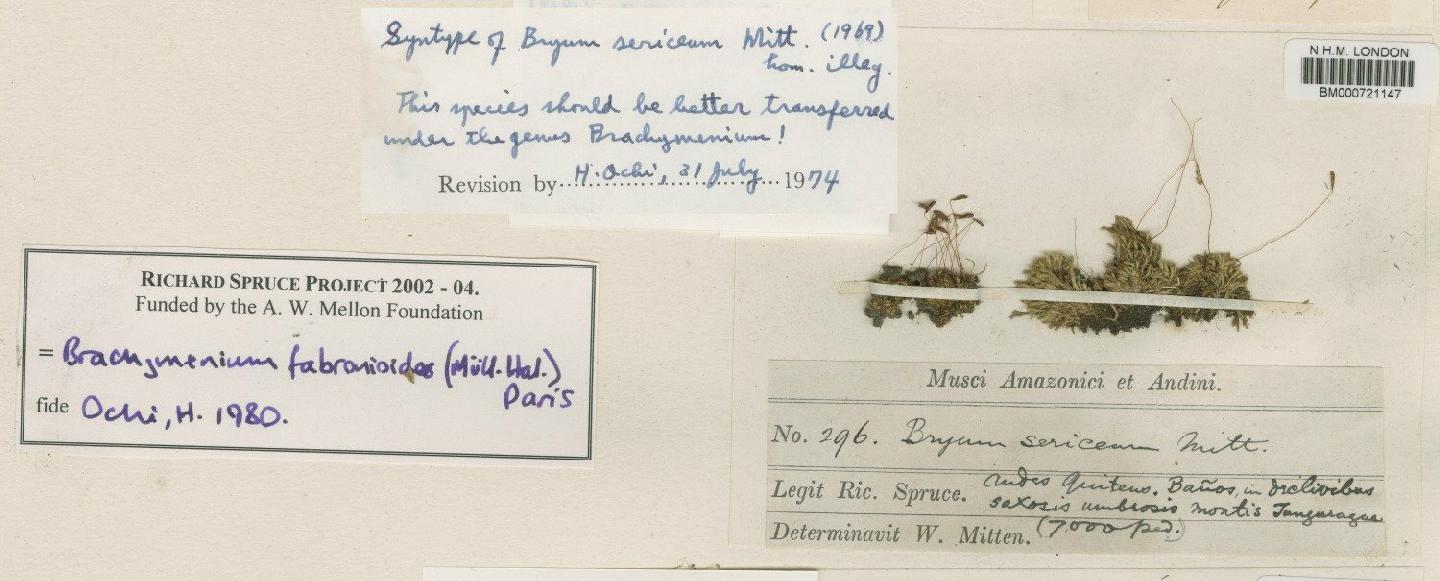 Syntype of Bryum sericeum Mitt. (1969)
hom. illeg.
This species should be better transferred
under the genus Brachymenium!
Revision by H. Ochi, 31 July 1974
N.H.M. LONDON
BM000721147
RICHARD SPRUCE PROJECT 2002 - 04.
Funded by the A. W. Mellon Foundation
= Brachymenium fabronioides (Müll. Hal.)
Paris
fide Ochi, H. 1980.
Musci Amazonici et Andini.
No. 296. Bryum sericeum Mitt.
Legit Ric. Spruce. Andes Quitens. Baños, in declivibus
saxosis umbrosis montis Tunguragua
Determinavit W. Mitten. (7000 ped.)